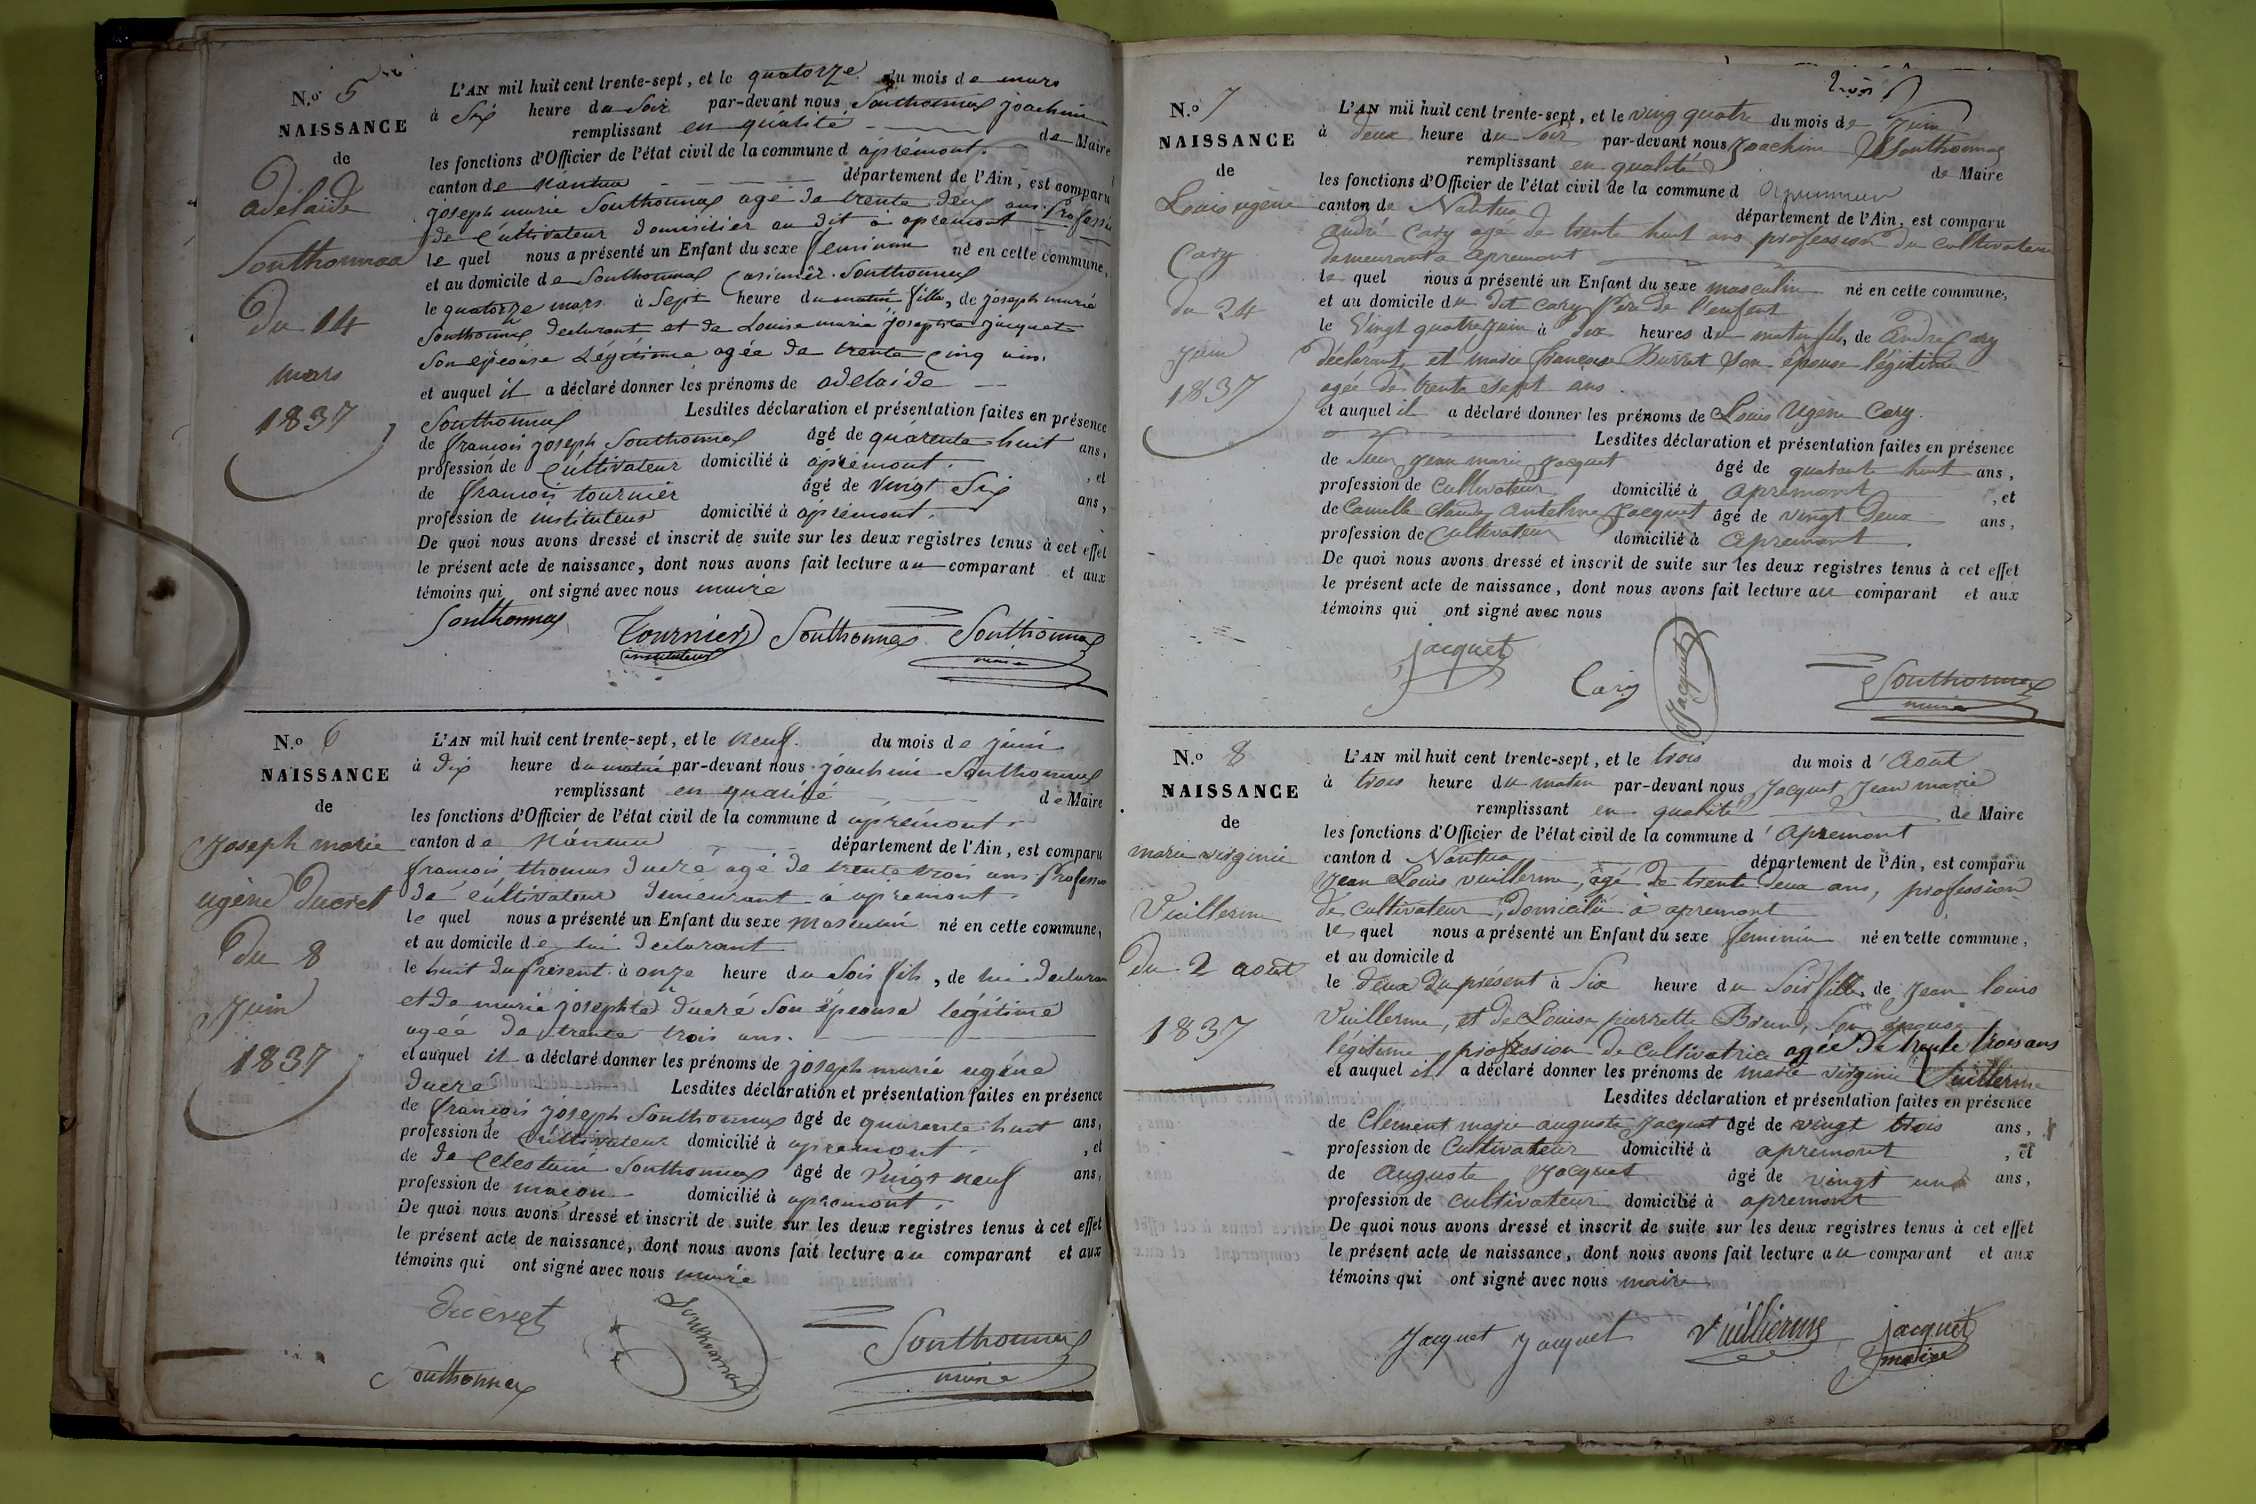 N.º 5
NAISSANCE
de
adélaide
Southonnax
Du 14
mars
1837
L'AN mil huit cent trente-sept, et le quatorze du mois de mars
à Six heure du Soir par-devant nous Southonnax joachim
remplissant en qualité de Maire
les fonctions d'Officier de l'état civil de la commune d aprémont.
canton de Nantua département de l'Ain, est comparu
joseph marie Southonnax agé de trente deux ans Professi
de Cultivateur domicilier au dit à apremont
le quel nous a présenté un Enfant du sexe feminin né en cette commune,
et au domicile de Southonnax Casimir Southonnax
le quatorze mars à Sept heure du matin fille, de joseph marie
Southonnax declarant et de Louise marie josephte jacquet
Son épeouse Légitime agée de trente cinq ans.
et auquel il a déclaré donner les prénoms de adelaide
Southonnax Lesdites déclaration et présentation faites en présence
de françois joseph Southonnax âgé de quarente huit ans,
profession de Cultivateur domicilié à apremont. , et
de françois tournier âgé de vingt Six ans,
profession de instituteur domicilié à apremont.
De quoi nous avons dressé et inscrit de suite sur les deux registres tenus à cet effet
le présent acte de naissance, dont nous avons fait lecture au comparant et aux
témoins qui ont signé avec nous maire
Southonnax Tournier Southonnax Southonnax
instituteur maire
N.º 6
NAISSANCE
de
Joseph marie
ugène Ducret
Du 8
Juin
1837
L'AN mil huit cent trente-sept, et le neuf. du mois de juin
à dix heure du matin par-devant nous joachim Southonnax
remplissant en qualité de Maire
les fonctions d'Officier de l'état civil de la commune d apremont.
canton de Nantua département de l'Ain, est comparu
françois thomas ducré agé de trente trois ans Professi
de cultivateur demeurant à apremont
le quel nous a présenté un Enfant du sexe masculin né en cette commune,
et au domicile de lui declarant
le huit du présent à onze heure du Soir fils, de lui declaran
et de marie josephte ducré Son épeouse legitime
agée de trente trois ans.
et auquel il a déclaré donner les prénoms de joseph marie ugéne
ducré Lesdites déclaration et présentation faites en présence
de françois joseph Southonnax âgé de quarente huit ans,
profession de Cultivateur domicilié à apremont. , et
de de Celestain Southonnax âgé de vingt neuf ans,
profession de maçon domicilié à apremont.
De quoi nous avons dressé et inscrit de suite sur les deux registres tenus à cet effet
le présent acte de naissance, dont nous avons fait lecture au comparant et aux
témoins qui ont signé avec nous maire
Ducret Southonnax Southonnax
Southonnax maire
trois
N.º 7
NAISSANCE
de
Louis ugène
Cary
du 24
Juin
1837
L'AN mil huit cent trente-sept, et le ving quatre du mois de Juin
à deux heure du Soir par-devant nous Joachim Southonnax
remplissant en qualité de Maire
les fonctions d'Officier de l'état civil de la commune d
canton de Nantua département de l'Ain, est comparu
andré Cary agé de trente huit ans profession du cultivateur
demeurant a apremont
le quel nous a présenté un Enfant du sexe masculin né en cette commune,
et au domicile du dit cary Père de l'enfant
le Vingt quatre juin à dix heures du matin fils, de André Cary
déclarant, et marie françoise Burret Son épouse légitime
agée de trente sept ans.
et auquel il a déclaré donner les prénoms de Louis Ugène Cary.
Lesdites déclaration et présentation faites en présence
de Sieur Jean marie Jacquet âgé de quarante huit ans,
profession de Cultivateur domicilié à apremont , et
de Camille Claude antelme Jacquet âgé de vingt deux ans,
profession de Cultivateur domicilié à apremont
De quoi nous avons dressé et inscrit de suite sur les deux registres tenus à cet effet
le présent acte de naissance, dont nous avons fait lecture au comparant et aux
témoins qui ont signé avec nous
jacquet Cary Jacquet Southonnax
maire
N.º 8
NAISSANCE
de
marie virginie
Vuillerme
Du 2 août
1837
L'AN mil huit cent trente-sept, et le trois du mois d'Août
à trois heure du matin par-devant nous Jacquet Jean marie
remplissant en qualité de Maire
les fonctions d'Officier de l'état civil de la commune d'apremont
canton d Nantua département de l'Ain, est comparu
Jean Louis vuillerme, âgé de trente deux ans, profession
de cultivateur, domicilié à apremont
le quel nous a présenté un Enfant du sexe feminin né en cette commune,
et au domicile d
le deux du présent à Six heure du Soir fille, de Jean louis
Vuillerme, et de Louise pierrette Brun, Son épouse
légitime profession de cultivatrice agée de trente trois ans
et auquel il a déclaré donner les prénoms de marie virginie Vuillerme
Lesdites déclaration et présentation faites en présence
de Clément marie auguste Jacquet âgé de vingt trois ans,
profession de Cultivateur domicilié à apremont , et
de auguste Jacquet âgé de vingt un ans,
profession de cultivateur domicilié à apremont
De quoi nous avons dressé et inscrit de suite sur les deux registres tenus à cet effet
le présent acte de naissance, dont nous avons fait lecture au comparant et aux
témoins qui ont signé avec nous maire
Jacquet Jacquet Vuillerme jacquet
maire